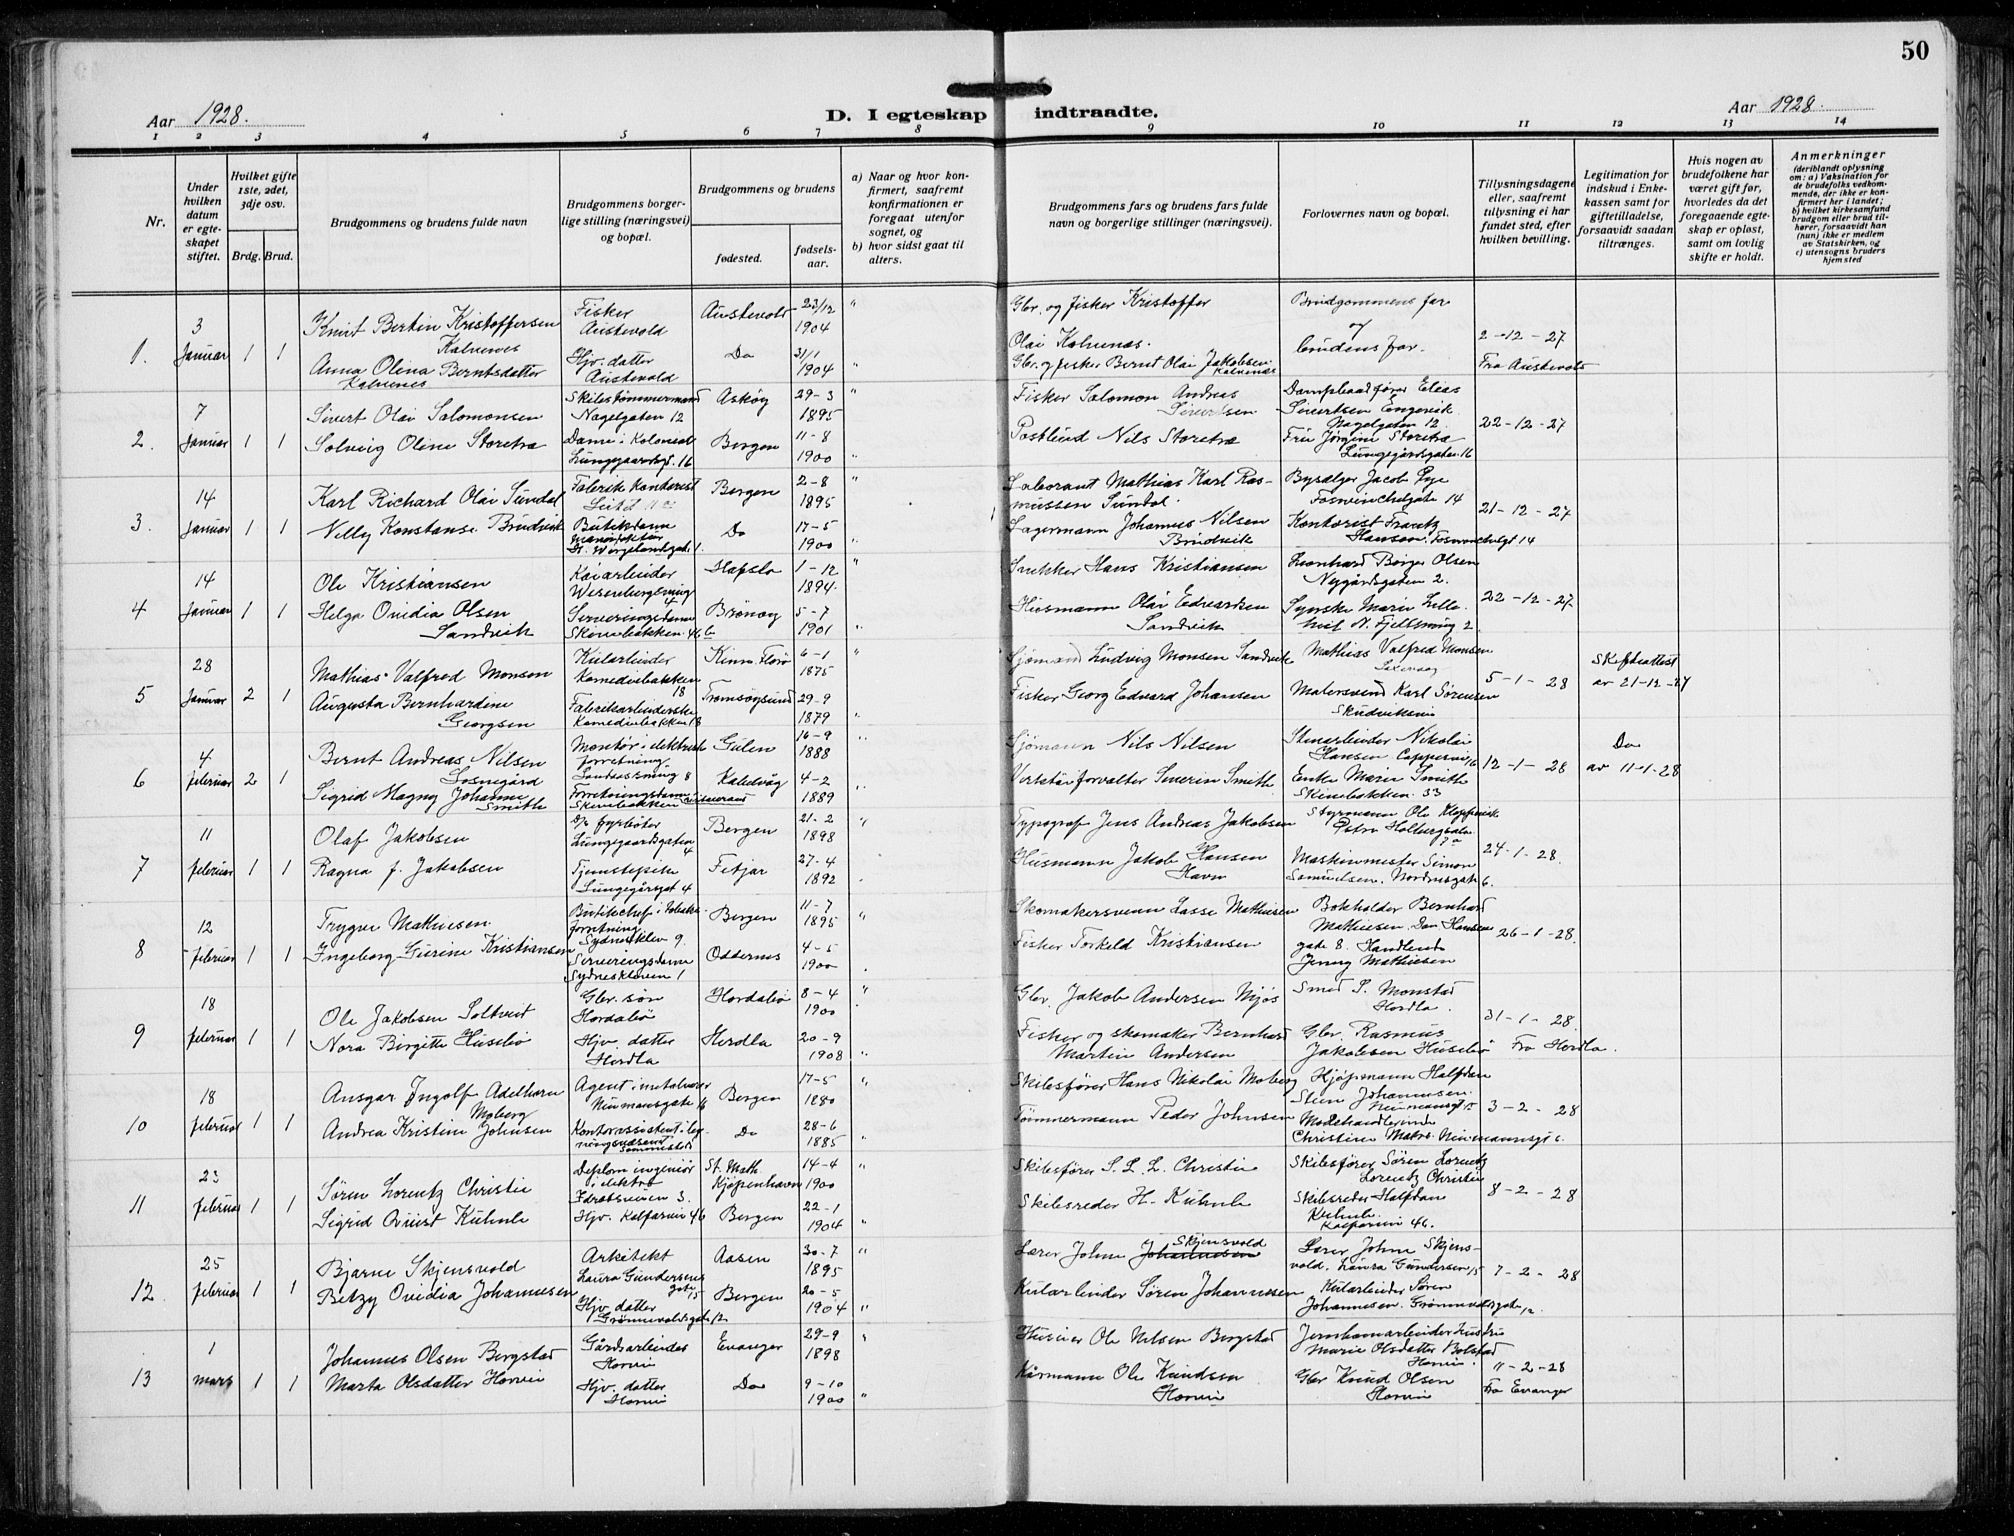 50
Aar 1928.
D. I egteskap indtraadte.
Aar 1928.
1 2 3 4 5 6 7 8 9 10 11 12 13 14
Nr.
Under hvilken datum er egteskapet stiftet.
Hvilket gifte 1ste, 2det, 3dje osv.
Brdg. Brud.
Brudgommens og brudens fulde navn
Brudgommens borgerlige stilling (næringsvei) og bopæl.
Brudgommens og brudens
fødested.
fødselsaar.
a) Naar og hvor konfirmert, saafremt konfirmationen er foregaat utenfor sognet, og
b) hvor sidst gaat til alters.
Brudgommens fars og brudens fars fulde navn og borgerlige stillinger (næringsvei).
Forlovernes navn og bopæl.
Tillysningsdagene eller, saafremt tillysning ei har fundet sted, efter hvilken bevilling.
Legitimation for indskud i Enkekassen samt for giftetilladelse, forsaavidt saadan tiltrænges.
Hvis nogen av brudefolkene har været gift før, hvorledes da det foregaaende egteskap er opløst, samt om lovlig skifte er holdt.
Anmerkninger
(deriblandt oplysning om: a) Vaksination for de brudefolks vedkommende, der ikke er konfirmert her i landet; b) hvilket kirkesamfund brudgom eller brud tilhører, forsaavidt han (hun) ikke er medlem av Statskirken, og c) utensogns bruders hjemsted
1. 3 Januar 1 1
Knut Bertin Kristoffersen Kalvenes
Fisker Austevold
Austevold 23/12 1904
Glr. og fisker Kristoffer Olai Kalvenes.
Brudgommens far og brudens far.
2-12-27
Fra Austevold
Anna Olina Berntsdatter Kalvenes
Hjv. datter Austevold
Do 31/1 1904
Gbr. og fisker Bernt Olai Jakobsen Kalvenes
2. 7 Januar 1 1
Sivert Olai Salomonsen
Skibstømmermand Nagelgaten 12
Askøy 29-3 1895
Fisker Salomon Andreas Sivertsen
Dampbaadfører Elias Sivertsen Engevik Nagelgaten 12.
22-12-27
Solveig Oline Storetræ
Dame i Kolonial Lungegaardsgt. 16
Bergen 11-8 1900
Postbud Nils Storetræ
Fru Jørgine Storetræ Lungegårdsgaten 16
3. 14 Januar 1 1
Karl Richard Olai Sundal
Fabrik kontorist
Bergen 2-8 1895
Laborant Mathias Karl Rasmussen Sundal.
Bysælger Jacob Pye Fosswinckelgate 14
21-12-27
Nelly Konstanse Brudvik
Butikdame
Do 17-5 1900
Lagermann Johannes Nilsen Brudvik
Kontorist Frantz Hanson. Foswinckelgt 14
4 14 Januar 1 1
Ole Kristiansen
Kaiarbeider
Hafslo 1-12 1894.
Snekker Hans Kristiansen
Leonhard Börger Olsen Nygårdsgaten 2.
22-12-27
Helga Ovidia Olsen Sandvik
Serveringsdame Skivebakken 46 b
Brønøy 5-7 1901
Husmann Olai Edvardsen Sandvik
5 28 Januar 2 1
Mathias Valfred Monsen
Kularbeider Komediebakken 18
Kinn. Florø 6-1 1875
Sjömand Ludvig Monsen Sandvik
Mathias Valfred Monsen
5-1-28
Skifteattest av 21-12-27
Augusta Bernhardine Georgsen
Fabrikarbeiderske Komediebakken 18
Tromsøysund 29-9 1879
Fisker Georg Edvard Johansen
Malersvend Karl Sørensen Skudviksvei
6 4 februar 2 1
Bernt Andreas Nilsen Losnegård
Montør i elektrisk forretning
Gulen 16-9 1888
Sjömann Nils Nilsen
Stenarbeider Nikolai Hansen
12-1-28
Do av 11-1-28
Sigrid Magny Johanne Smith
Forretningsdame
Kalvåg 4-2 1889
Verkstørforvalter Severin Smith
Enke Marie Smith Skivebakken 33
7 11 februar 1 1
Olaf Jakobsen
s/s fyrbøter Lungegaardsgaten 4
Bergen 21-2 1898
Typograf Jens Andreas Jakobsen
Styrmann Ole Kloppervik
24-1-28.
Ragna J. Jakobsen
Tjenestepike Lungegårdsgt 4
Fitjar 27-4 1892
Husmann Jakob Hansen Havn
Maskinmester Simon Samuelsen. Nordnesgate 6.
8 12 februar 1 1
Trygve Mathiesen
Butikchef i Tobaksforretning Sydneskleiv 9.
Bergen 11-7 1895
Skomakersvenn Lasse Mathiesen
Bokholder Bernhard Mathiesen. Dan Hansens gate 8. Handlende Jenny Mathiesen
26-1-28.
Ingeborg Gurine Kristiansen
Serveringsdame Sydneskleven 1
Oddernes 4-5 1900
Fisker Torkeld Kristiansen
9 18 februar 1 1
Ole Jakobsen Soltveit
Gbr. søn Hordabø
Hordabø 8-4 1900
Gbr. Jakob Andersen Mjøs
Smed S. Monstad Herdla.
31-1-28.
Fra Herdla.
Nora Birgitte Husebø
Hjv. datter Herdla
Herdla 20-9 1908
Fisker og skomaker Bernhard Martin Andersen
Gbr. Rasmus Jakobsen Husebø
10 18 februar 1 1
Ansgar Ingolf Adelhorn Moberg
Agent i metalvarer Neumansgate 16
Bergen 17-5 1880
Skibsfører Hans Nikolai Moberg
Kjøpmann Halfdan Stein Johannesen. Neumansgt 15
3-2-28
Andrea Kristine Johnsen
Kontorassistent
Do 28-6 1885
Tömmermann Peder Johnsen
Modehandlerinde Christine
11 23 februar 1 1
Søren Lorentz Christie
Diplom ingeniør i elektro Idrætsveien 3.
St. Math. Kjøpenhavn 14-4 1900
Skibsfører S. L. L. Christie
Skibsfører Søren Lorentz Lorentz Christie
8-2-28
Sigrid Qvist Kuhnle
Hjv. Kalfarvei 46
Bergen 22-1 1904
Skibsreder H. Kuhnle
Skibsreder Halfdan Kuhnle. Kalfarvei 46.
12. 25 februar 1 1
Bjarne Skjensvold
Arkitekt Laura Gundersens gate 15
Aasen 30-7 1895
Lærer Johne J. Skjensvold Johannesen
Lærer Johne Skjensvold. Laura Gundersens 15
7-2-28
Betzy Ovidia Johannesen
Hjv. datter Grønnevoldsgate 12
Bergen 20-5 1904
Kularbeider Sören Johannesen
Kularbeider Sören Johannesen. Grönnevoldsgate 12.
13 1 mars 1 1
Johannes Olsen Bergstad
Gårdsarbeider Horvei
Evanger 29-9 1898
Husmen Ole Nilsen Bergstad
Jernbanearbeider hustru Marie Olsdatter Bolstad Horvei.
11-2-28
Fra Evanger
Marta Olsdatter Horvei
Hjv. datter Horvei
Do 9-10 1900
Kårmann Ole Knudsen Horvei
Gbr Knud Olsen Horvei